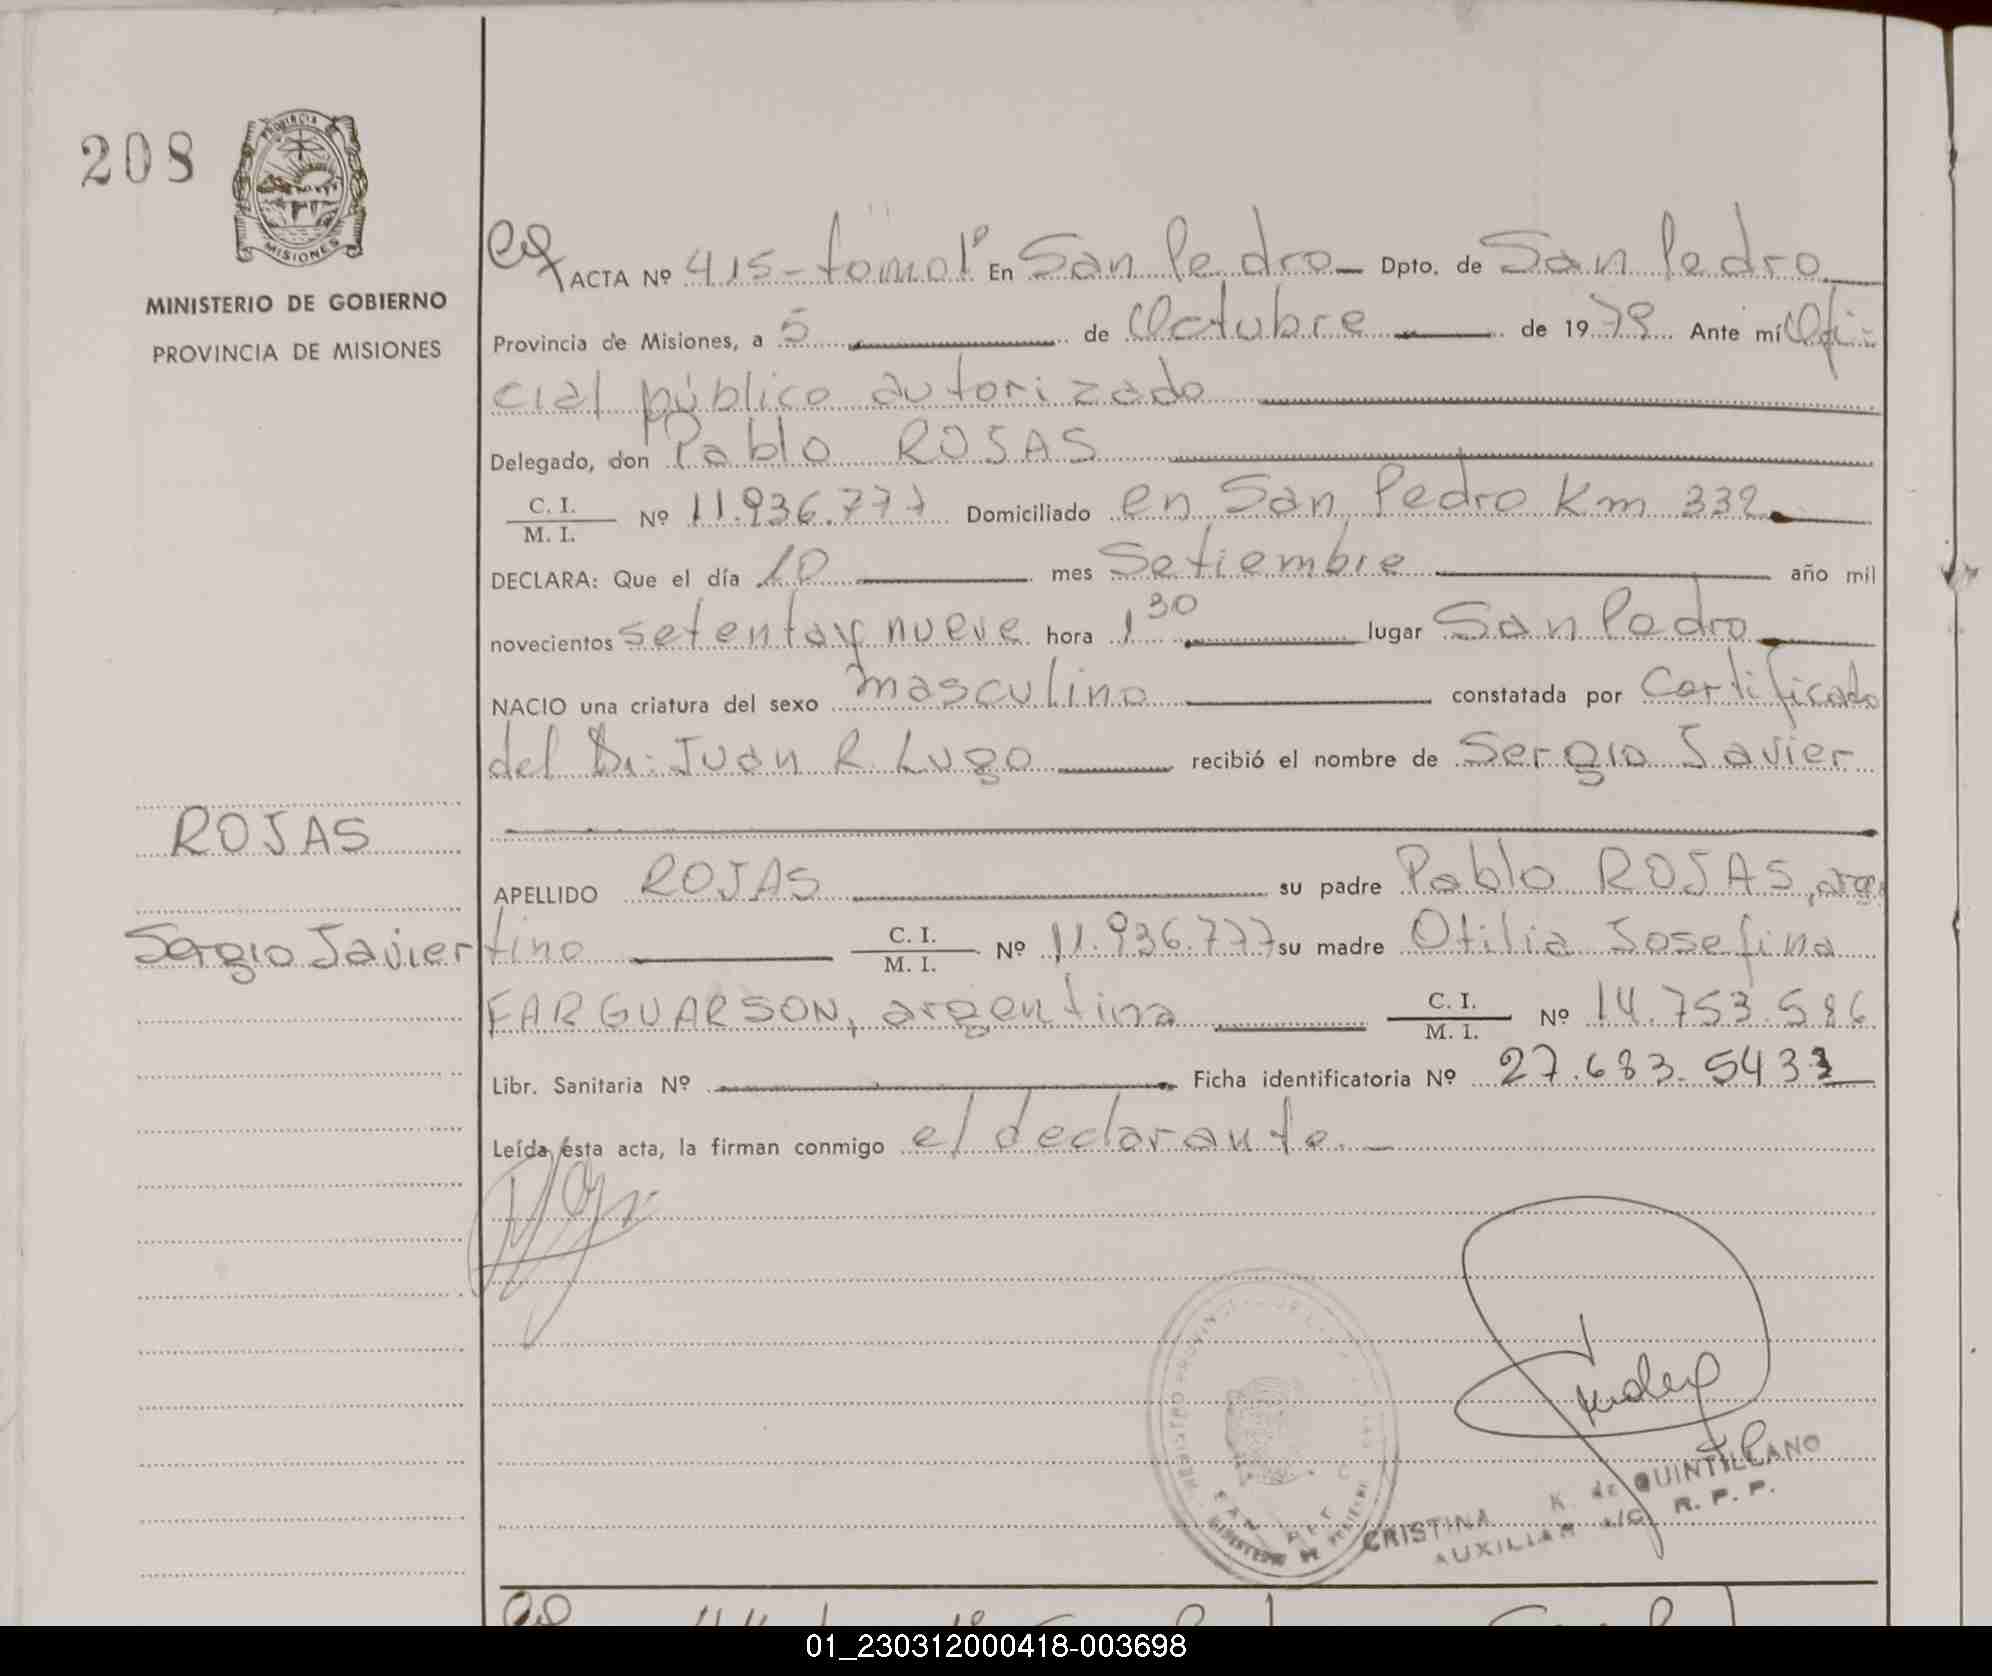 208
PROVINCIA DE
MISIONES
MINISTERIO DE GOBIERNO
PROVINCIA DE MISIONES
ROJAS
Sergio Javier
ACTA Nº 415 - tomo 1º En San Pedro Dpto. de San Pedro
Provincia de Misiones, a 5 de Octubre de 1979 Ante mí Ofi-
cial público autorizado
Delegado, don Pablo ROJAS
C. I.
M. I. Nº 11.936.777 Domiciliado en San Pedro Km 332
DECLARA: Que el día 10 mes Setiembre año mil
novecientos setenta y nueve hora 1 30 lugar San Pedro
NACIO una criatura del sexo masculino constatada por Certificado
del Dr. Juan R. Lugo recibió el nombre de Sergio Javier
APELLIDO ROJAS su padre Pablo ROJAS, argen
tino C. I.
M. I. Nº 11.936.777 su madre Otilia Josefina
FARGUARSON, argentina C. I.
M. I. Nº 14.753.586
Libr. Sanitaria Nº Ficha identificatoria Nº 27.683.543
Leída ésta acta, la firman conmigo el declarante.
CRISTINA K. de QUINTILLANO
AUXILIAR a/c R. P. P.
01_230312000418-003698